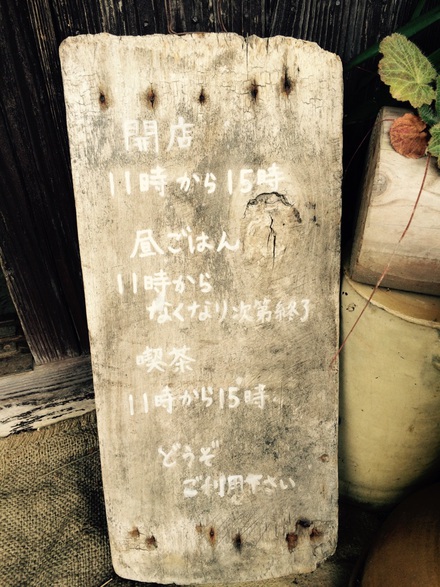 開店
11時から15時
昼ごはん
11時から
なくなり次第終了
喫茶
11時から15時
どうぞ
ご利用下さい